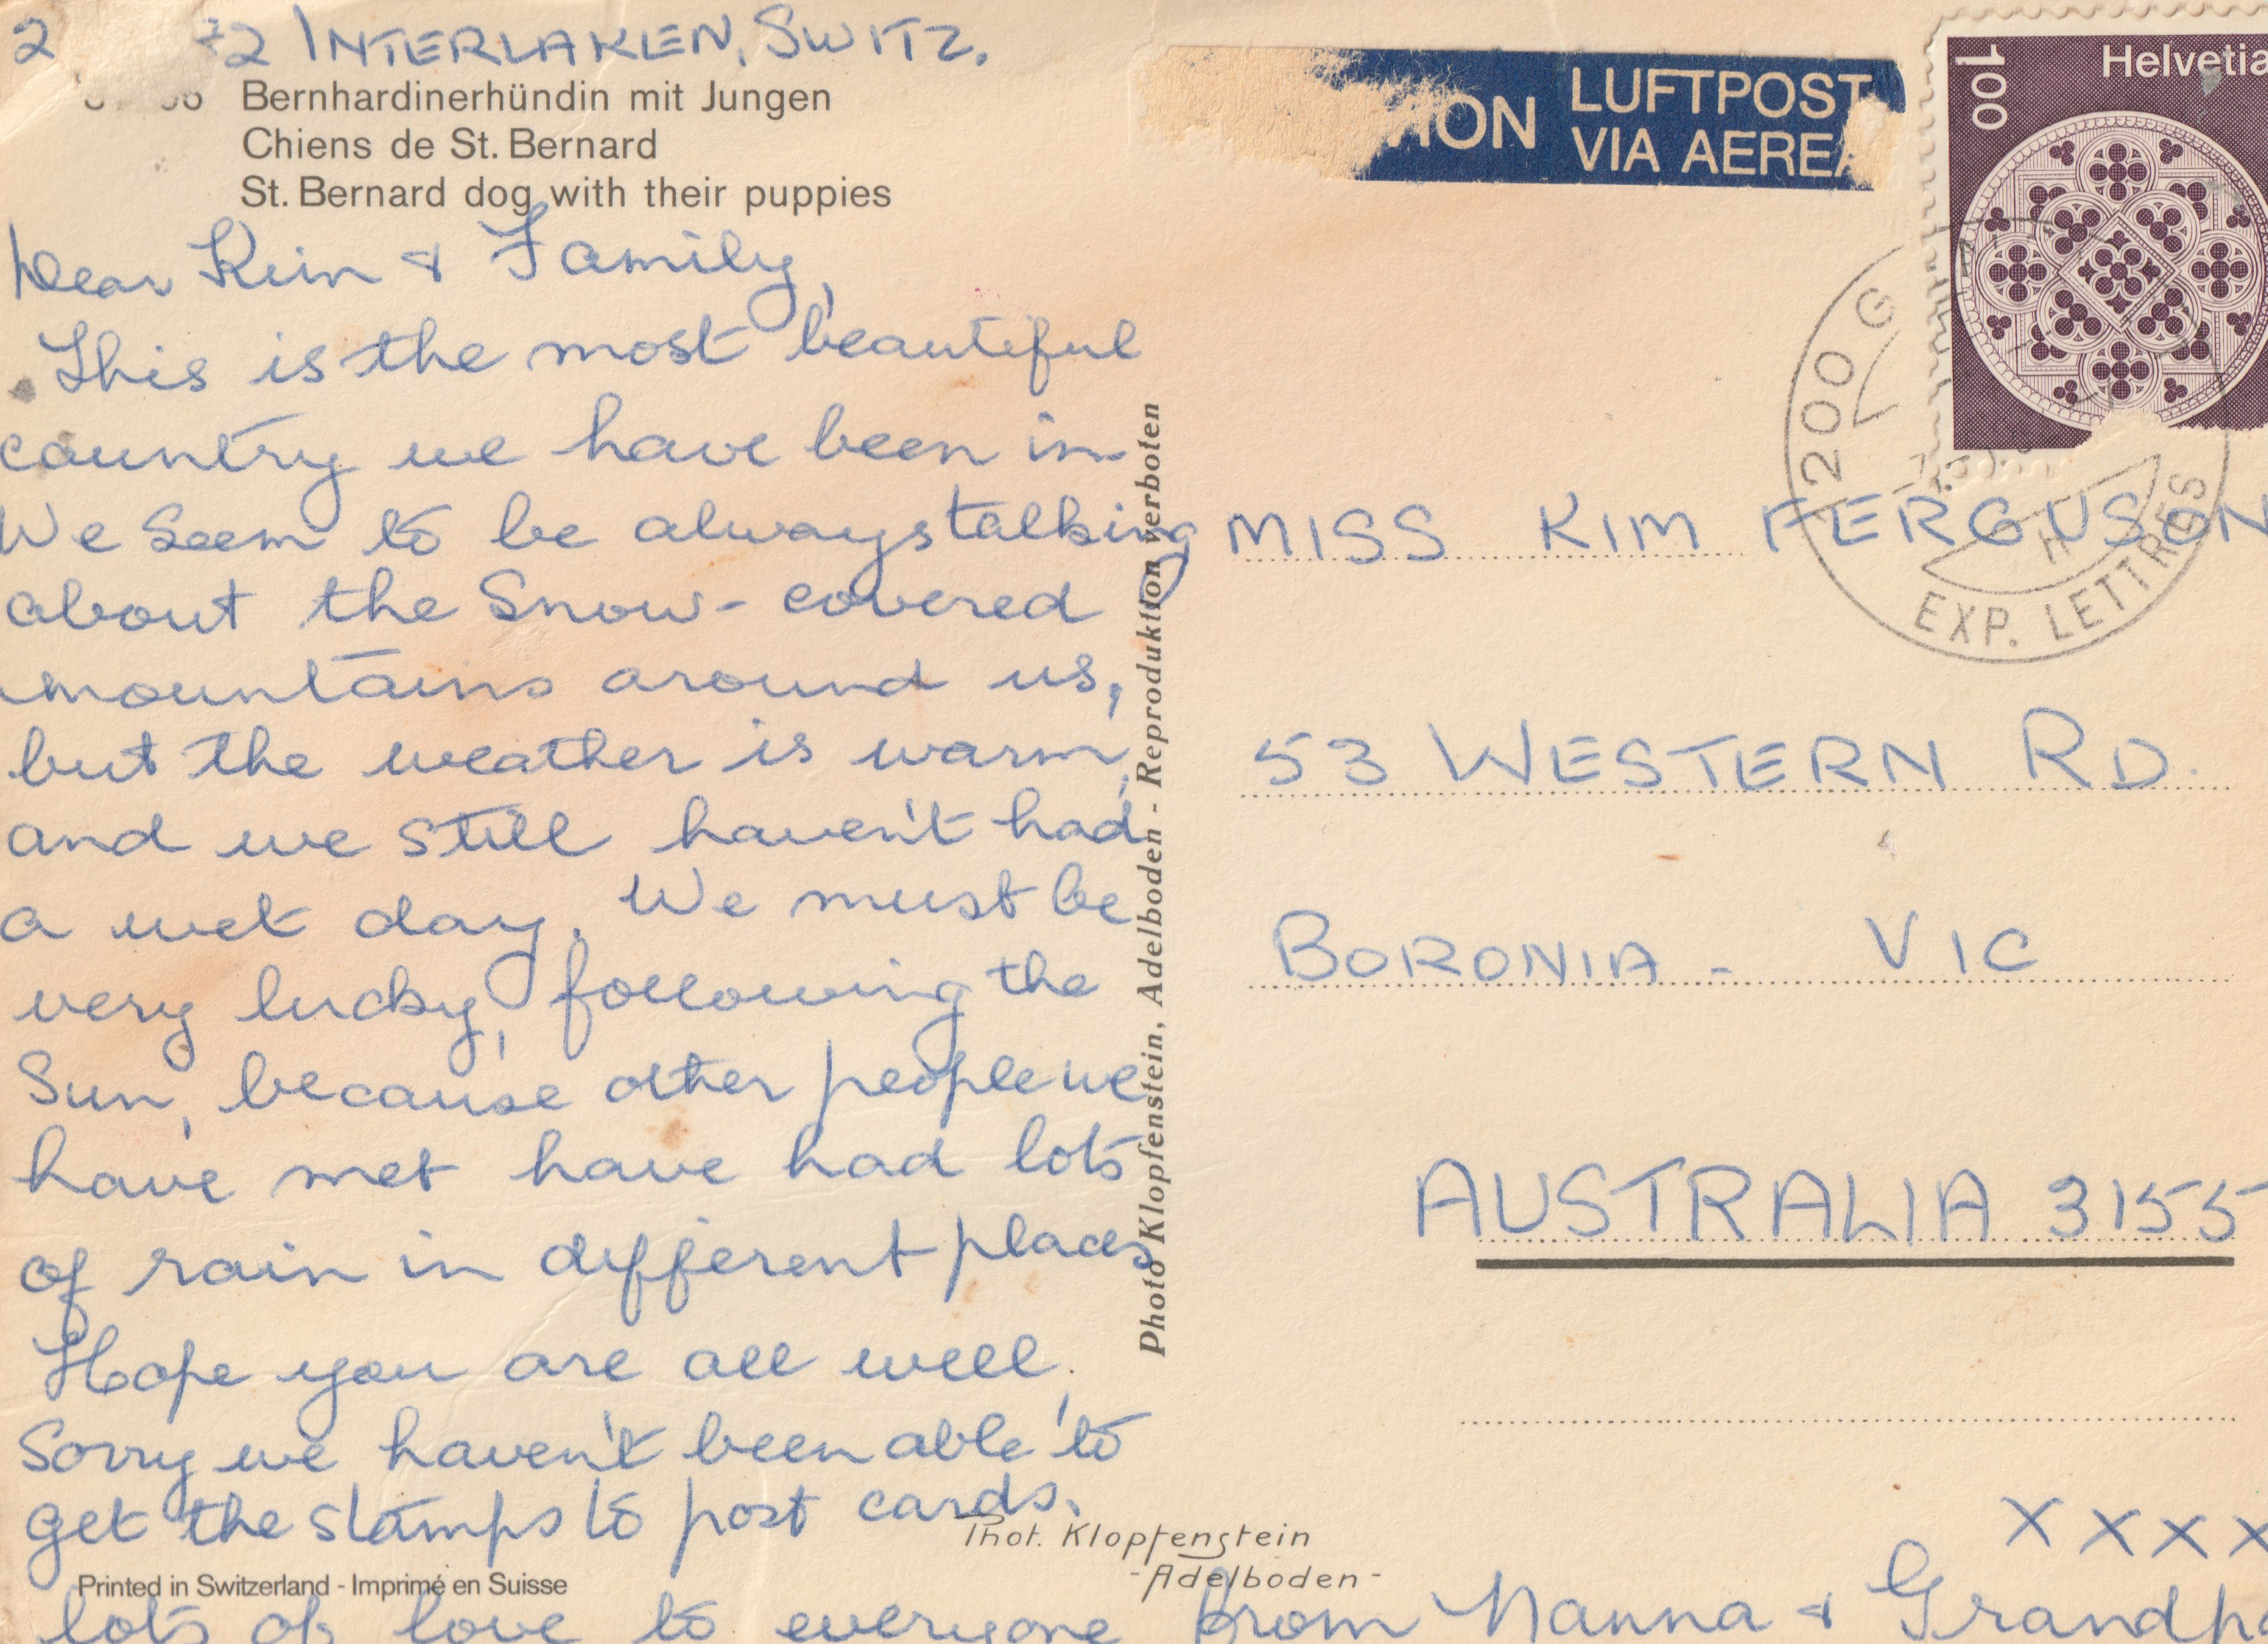 INTERLAKEN, SWITZ.
Bernhardinerhündin mit Jungen
Chiens de St. Bernard
St. Bernard dog with their puppies
Dear Kim & Family,
This is the most beautiful
country we have been in.
We seem to be always talking
about the Snow-covered
mountains around us,
but the weather is warm,
and we still haven't had
a wet day. We must be
very lucky, following the
Sun, because other people we
have met have had lots
of rain in different places
Hope you are all well,
Sorry we haven't been able to
get the stamps to post cards.
lots of love to everyone from Nanna & Grandpa
Printed in Switzerland - Imprimé en Suisse
Phot. Klopfenstein
-Adelboden-
Photo Klopfenstein, Adelboden - Reproduktion verboten
LUFTPOST
VIA AEREA
Helvetia
100
EXP. LETTRES
MISS KIM FERGUSON
53 WESTERN RD.
BORONIA - VIC
AUSTRALIA 3155
X X X X